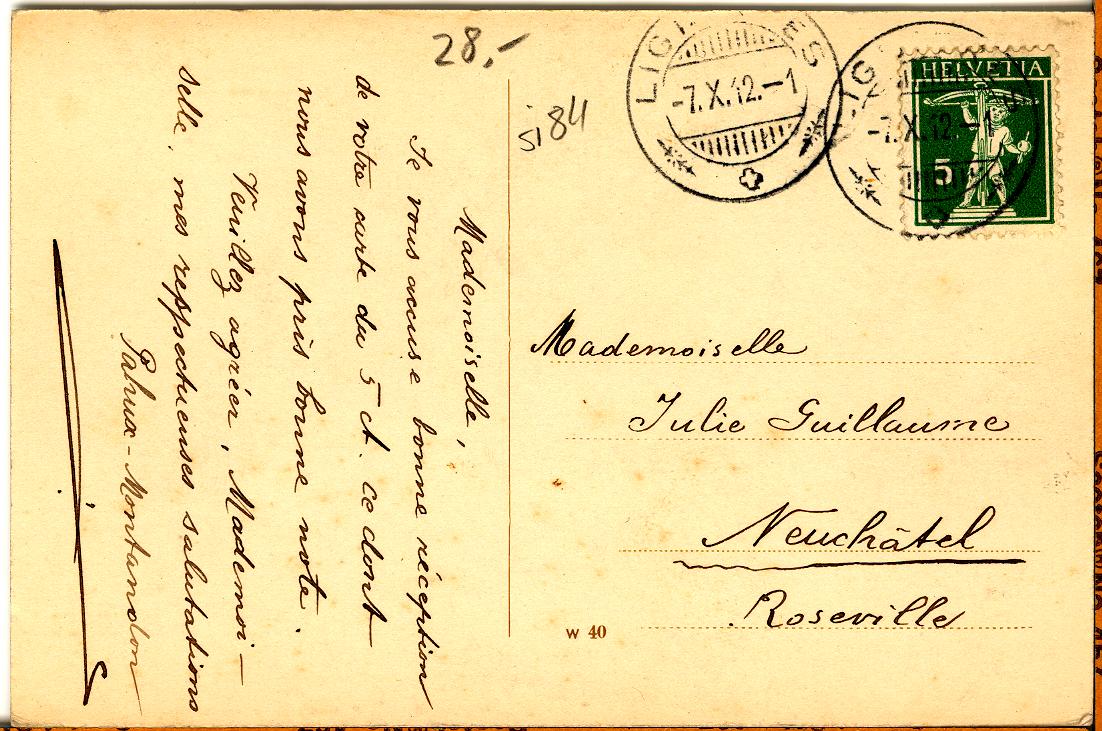 28.-
5i84
-7.X.12.-1
-7.X.12.-1
HELVETIA
5
Mademoiselle,
Je vous accuse bonne réception
de votre carte du 5 ct. ce dont
nous avons pris bonne note.
Veuillez agréer, Mademoi-
selle, mes respectueuses salutations
Montandon
Mademoiselle
Julie Guillaume
Neuchâtel
Roseville
W 40